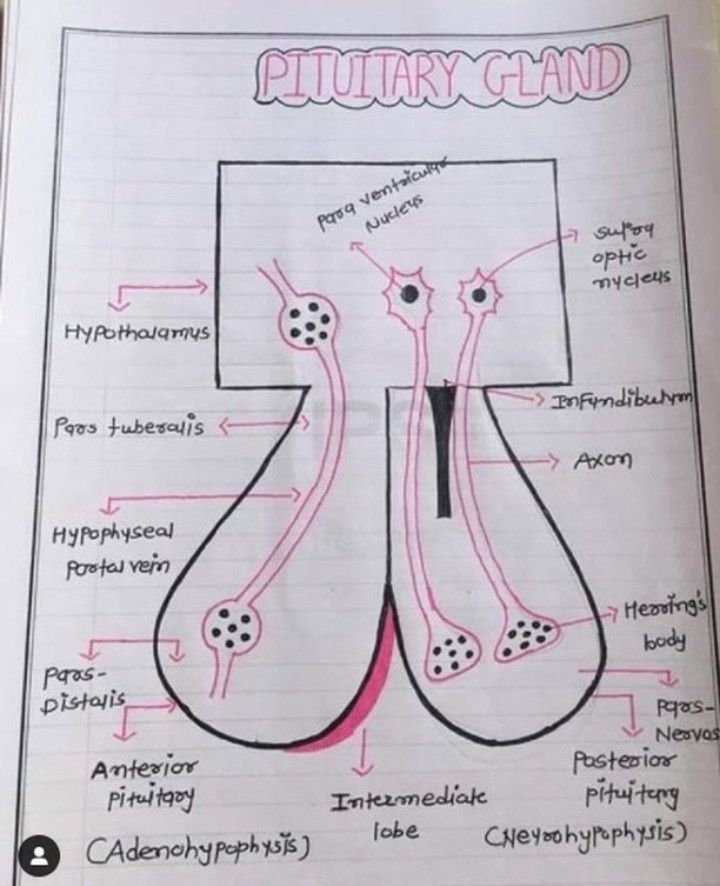 PITUITARY GLAND
Para ventricular
Nucleus
Supra
optic
nucleus
Hypothalamus
Infundibulum
Pars tuberalis
Axon
Hypophyseal
portal vein
Herring's
body
Pars-
Distalis
Pars-
Nervos
Anterior
pituitary
(Adenohypophysis)
Intermediate
lobe
Posterior
pituitary
(Neurohypophysis)